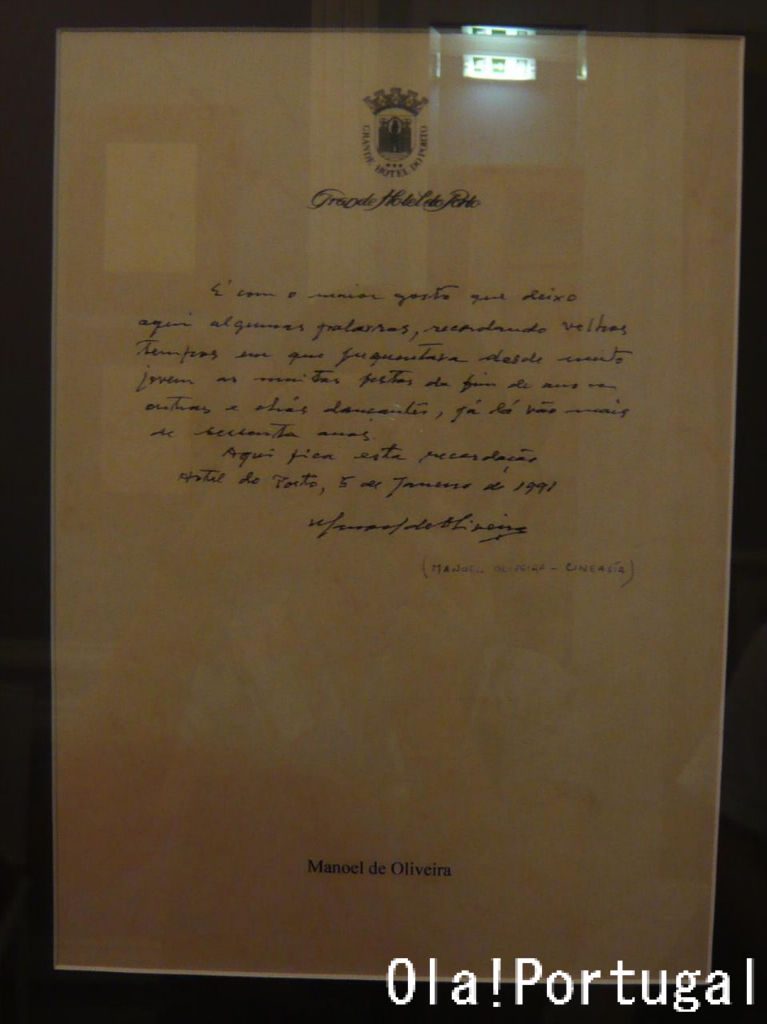 GRANDE HOTEL DO PORTO
Grande Hotel do Porto
É com o maior gosto que deixo
aqui algumas palavras, recordando velhos
tempos em que frequentava desde muito
jovem as muitas festas de fim de ano e
outras e chás dançantes, já lá vão mais
de sessenta anos.
Aqui fica esta recordação
Hotel do Porto, 5 de Janeiro de 1991
Manoel de Oliveira
(MANOEL OLIVEIRA - CINEASTA)
Manoel de Oliveira
Ola!Portugal